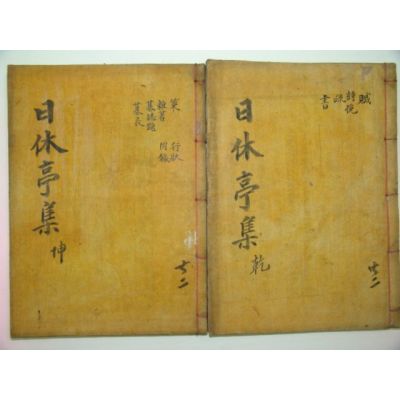 賦
詩挽
疏
書
日休亭集
乾
共二
策 行狀
雜著 附錄
墓誌
墓表
日休亭集
坤
共二